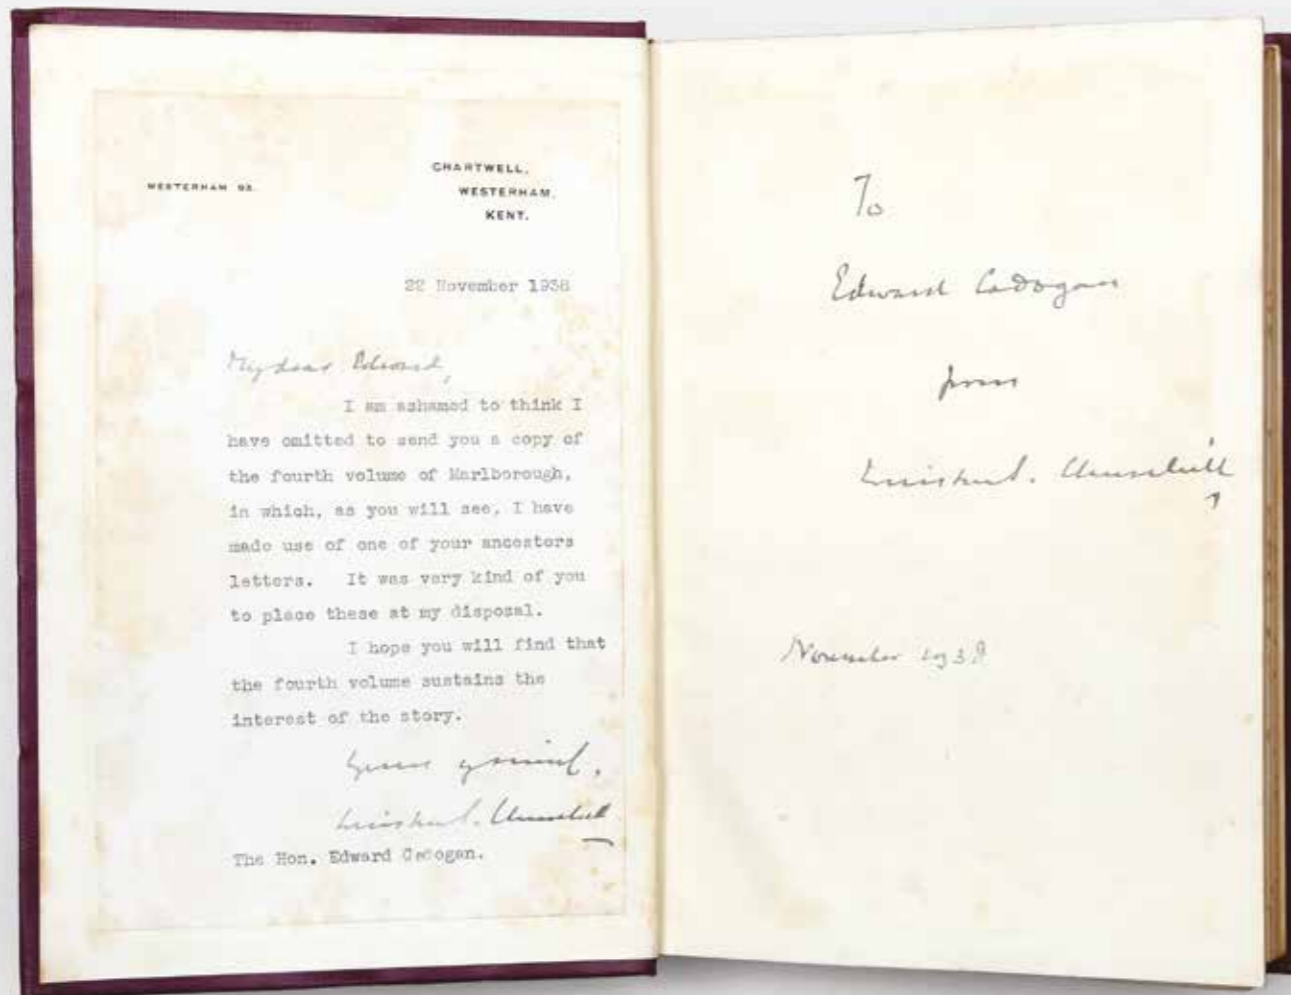 WESTERHAM 93.
CHARTWELL,
WESTERHAM,
KENT.
22 November 1938
My dear Edward,
I am ashamed to think I
have omitted to send you a copy of
the fourth volume of Marlborough,
in which, as you will see, I have
made use of one of your ancestors
letters. It was very kind of you
to place these at my disposal.
I hope you will find that
the fourth volume sustains the
interest of the story.
Yours
Winston S. Churchill
The Hon. Edward Cadogan.
To
Edward Cadogan
from
Winston S. Churchill
November 1938